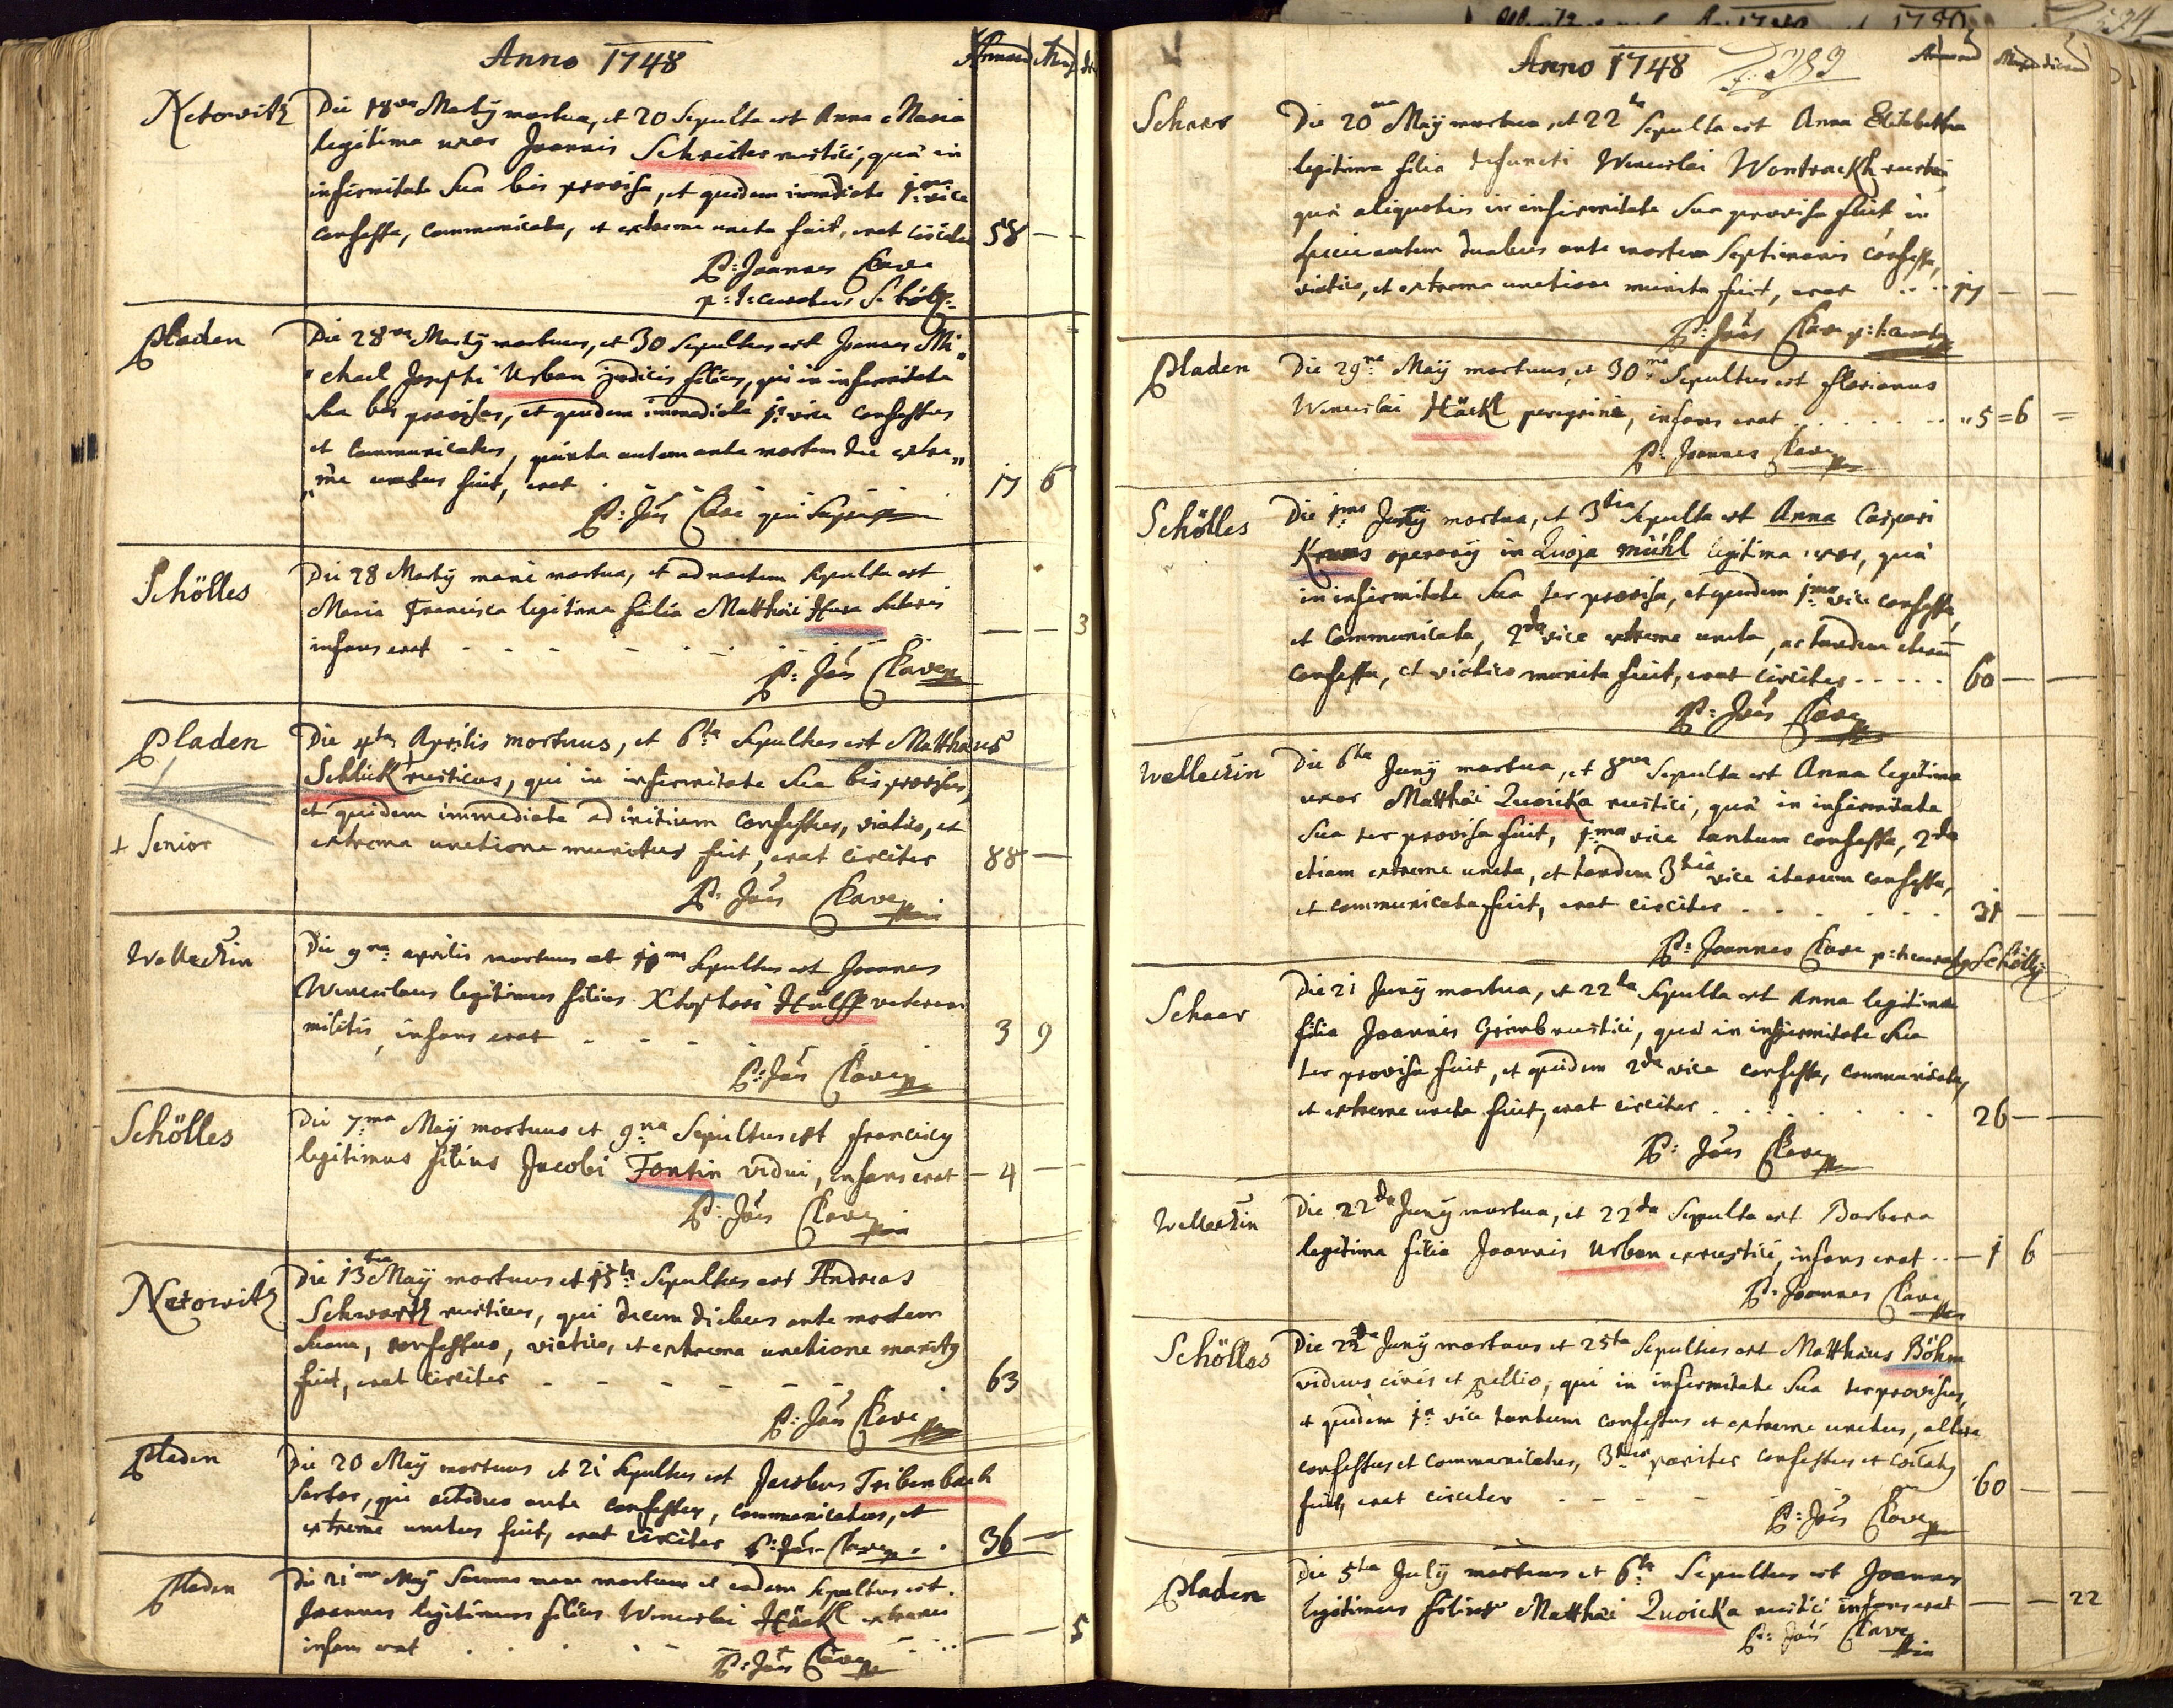 Anno 1748
Netowitz
Die 18va Martÿ mortua, et 20 Sepulta est Anna Maria
legitima uxor Joannis Schreiter rustici, quæ in
infirmitate sua bis provisa, et quidem immediate 1ma vice
confessa, communicata, et extreme uncta fuit, erat circiter 58 — —
P: Joannes Clave
Pladen
Die 28va Martÿ mortuus, et 30 Sepultus est Joannes Mi„
„chael Josephi Urban judicis filius, qui in infirmitate
sua bis provisus, et quidem immediate 1a vice confessus
et communicatus, quinta autem ante mortem die extre„
„me unctus fuit, erat 17 6
P: Jois Clave qui supra
Schölles
Die 28 Martÿ mane mortua, et ad noctem sepulta est
Maria Francisca legitima filia Matthæi
infans erat — — 3
P: Jois Clave
Pladen
Die 4ta Aprilis mortuus, et 6ta Sepultus est Matthæus
Schlick rusticus, qui in infirmitate sua bis provisus,
et quidem immediate ad initium confessus, viatico, et
+ Senior
extrema unctione munitus fuit, erat circiter 88 —
P: Jois Clave
Welletzin
Die 9na aprilis mortuus et 11ma Sepultus est Joannes
Wenceslaus legitimus filius Xtophori Hülff veterani
militis, infans erat 3 9
P: Jois Clave
Schölles
Die 7ma Maÿ mortuus et 9na Sepultus est
legitimus filius Jacobi Fontin vidui, infans erat — 4 —
P: Jois Clave
Netowitz
Die 13tia Maÿ mortuus et 15ta Sepultus est Andreas
Schwartz rusticus, qui decem diebus ante mortem
suam, confessus, viatico, et extrema unctione munitus
fuit, erat circiter 63
P: Jois Clave
Pladen
Die 20 Maÿ mortuus et 21 Sepultus est Jacobus Tribenbach
sartor, qui octiduo ante confessus, communicatus, et
extreme unctus fuit, erat circiter 36 —
P: Jois Clave
Pladen
Die 21ma Maÿ summo mane mortuus et eadem sepultus est
Joannes legitimus filius Wenceslai Häckl
infans erat — — 5
P: Jois Clave
Anno 1748
Schaar
Die 20ma Maÿ mortua, et 22da Sepulta est Anna Elisabetha
legitima filia defuncti Wenceslai Wontrackh rustici,
quæ aliquoties in infirmitate sua provisa fuit, in
specie autem duabus ante mortem septimanis confessa,
viatico, et extrema unctione munita fuit, erat 17 — —
P: Jois Clave
Pladen
Die 29na Maÿ mortuus, et 30ma Sepultus est Florianus
Wenceslai Häckl peregrini, infans erat „ 5 = 6 =
P: Joannes Clave
Schölles
Die 1ma Junÿ mortua, et 3tia Sepulta est Anna Caspari
operarÿ in mühl legitima uxor, quæ
in infirmitate sua ter provisa, et quidem 1ma vice confessa,
et communicata, 2da vice extreme uncta, ac tandem iterum
confessa, et viatico munita fuit, erat circiter 60 — —
P: Jois Clave
Welletzin
Die 6ta Junÿ mortua, et 8va Sepulta est Anna legitima
uxor Matthæi Zwicka rustici, quæ in infirmitate
sua ter provisa fuit, 1ma vice tantum confessa, 2da
etiam extreme uncta, et tandem 3tia vice iterum confessa,
et communicata fuit, erat circiter 31 — —
P: Joannes Clave
Schaar
Die 21 Junÿ mortua, et 22da Sepulta est Anna legitima
filia Joannis Grimb rustici, quæ in infirmitate sua
ter provisa fuit, et quidem 2da vice confessa, communicata,
et extreme uncta fuit, erat circiter 26 — —
P: Jois Clave
Welletzin
Die 22da Junÿ mortua, et 22da Sepulta est Barbara
legitima filia Joannis Urban exrustici, infans erat — 1 6
P: Joannes Clave
Schölles
Die 22da Junÿ mortuus et 25ta Sepultus est Matthæus Böhm
viduus civis et pellio, qui in infirmitate sua ter provisus,
et quidem 1a vice tantum confessus et extreme unctus, altera
confessus et communicatus, 3tia pariter confessus et coicatus
fuit, erat circiter 60 — —
P: Jois Clave
Pladen
Die 5ta Julÿ mortuus et 6ta Sepultus est Joannes
legitimus filius Matthæi Zwicka rustici infans erat — — 22
P: Jois Clave